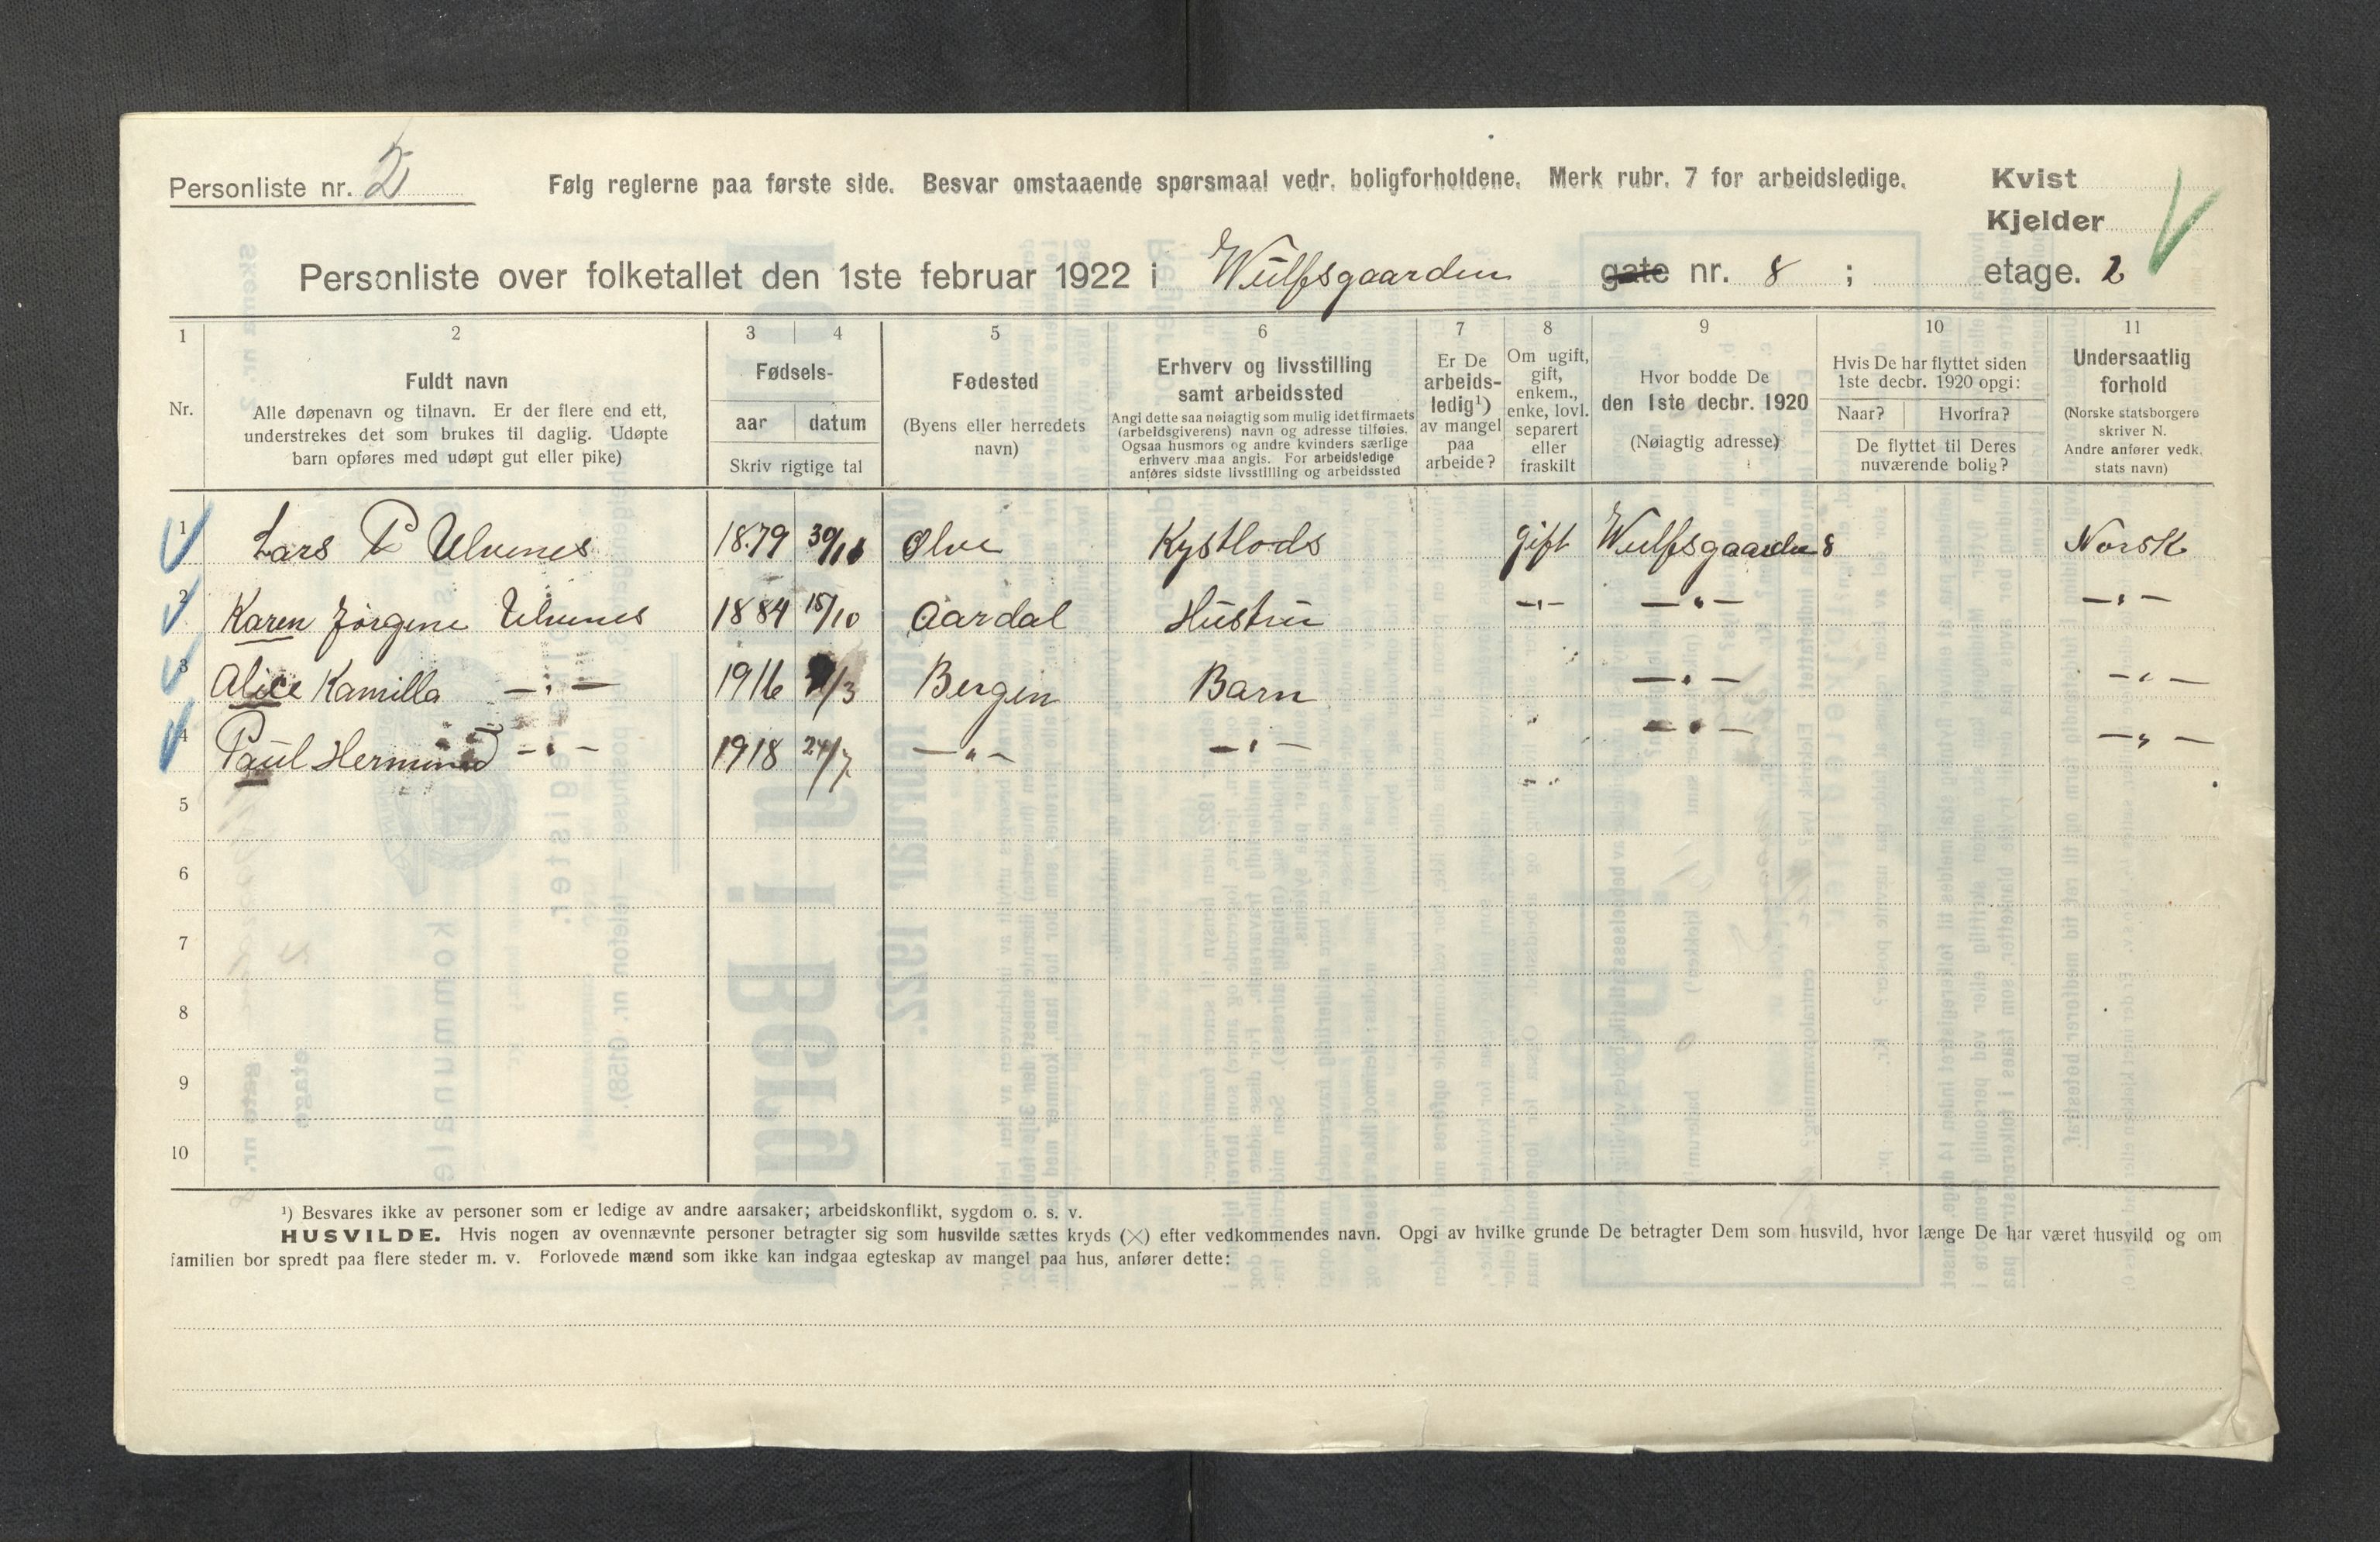 Personliste nr. 2
Følg reglerne paa første side. Besvar omstaaende spørsmaal vedr. boligforholdene. Merk rubr. 7 for arbeidsledige.
Kvist
Kjelder
Personliste over folketallet den 1ste februar 1922 i Wulfsgaarden gate nr. 8 ; etage. 2
1 2 3 4 5 6 7 8 9 10 11
Nr.
Fuldt navn
Alle døpenavn og tilnavn. Er der flere end ett,
understrekes det som brukes til daglig. Udøpte
barn opføres med udøpt gut eller pike)
Fødsels-
aar datum
Skriv rigtige tal
Fødested
(Byens eller herredets
navn)
Erhverv og livsstilling
samt arbeidssted
Angi dette saa nøiagtig som mulig idet firmaets
(arbeidsgiverens) navn og adresse tilføies.
Ogsaa husmors og andre kvinders særlige
erhverv maa angis. For arbeidsledige
anføres sidste livsstilling og arbeidssted
Er De
arbeids-
ledig¹)
av mangel
paa
arbeide?
Om ugift,
gift,
enkem.,
enke, lovl.
separert
eller
fraskilt
Hvor bodde De
den 1ste decbr. 1920
(Nøiagtig adresse)
Hvis De har flyttet siden
1ste decbr. 1920 opgi:
Naar? Hvorfra?
De flyttet til Deres
nuværende bolig?
Undersaatlig
forhold
(Norske statsborgere
skriver N.
Andre anfører vedk.
stats navn)
1 Lars P Ulvenes 1879 30/11 Ølve Kystlods gift Wulfsgaarden 8 Norsk
2 Karen Jørgine Ulvenes 1884 15/10 Aardal Hustru —"— —"— —"—
3 Alice Kamilla —"— 1916 /3 Bergen Barn —"— —"—
4 Paul Hermund —"— 1918 24/7 —"— —"— —"— —"—
5
6
7
8
9
10
¹) Besvares ikke av personer som er ledige av andre aarsaker; arbeidskonflikt, sygdom o. s. v.
HUSVILDE. Hvis nogen av ovennævnte personer betragter sig som husvilde sættes kryds (×) efter vedkommendes navn. Opgi av hvilke grunde De betragter Dem som husvild, hvor længe De har været husvild og om
familien bor spredt paa flere steder m. v. Forlovede mænd som ikke kan indgaa egteskap av mangel paa hus, anfører dette: